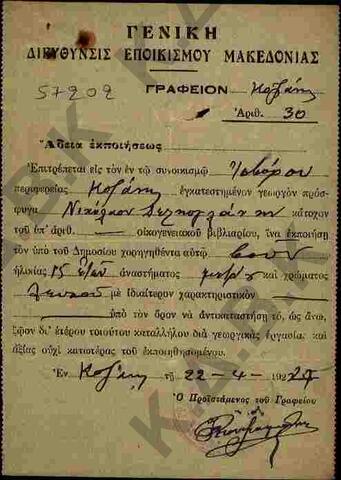 ΓΕΝΙΚΗ
ΔΙΕΥΘΥΝΣΙΣ ΕΠΟΙΚΙΣΜΟΥ ΜΑΚΕΔΟΝΙΑΣ
57202
ΓΡΑΦΕΙΟΝ Κοζάνης
Ἀριθ. 30
Ἄδεια ἐκποιήσεως
Ἐπιτρέπεται εἰς τὸν ἐν τῷ συνοικισμῷ
περιφερείας Κοζάνης ἐγκατεστημένον γεωργὸν πρόσ-
φυγα Νικόλαον κάτοχον
τοῦ ὑπ' ἀριθ. οἰκογενειακοῦ βιβλιαρίου, ἵνα ἐκποιήσῃ
τὸν ὑπὸ τοῦ Δημοσίου χορηγηθέντα αὐτῷ βοῦν
ἡλικίας 15 ἐτῶν ἀναστήματος καὶ χρώματος
λευκοῦ μὲ ἰδιαίτερον χαρακτηριστικὸν
ὑπὸ τὸν ὅρον νὰ ἀντικαταστήσῃ τό, ὡς ἄνω,
ζῶον δι' ἑτέρου τοιούτου καταλλήλου διὰ γεωργικὰς ἐργασίας καὶ
ἀξίας οὐχὶ κατωτέρας τοῦ ἐκποιηθησομένου.
Ἐν Κοζάνῃ τῇ 22-4-192
Ὁ Προϊστάμενος τοῦ Γραφείου